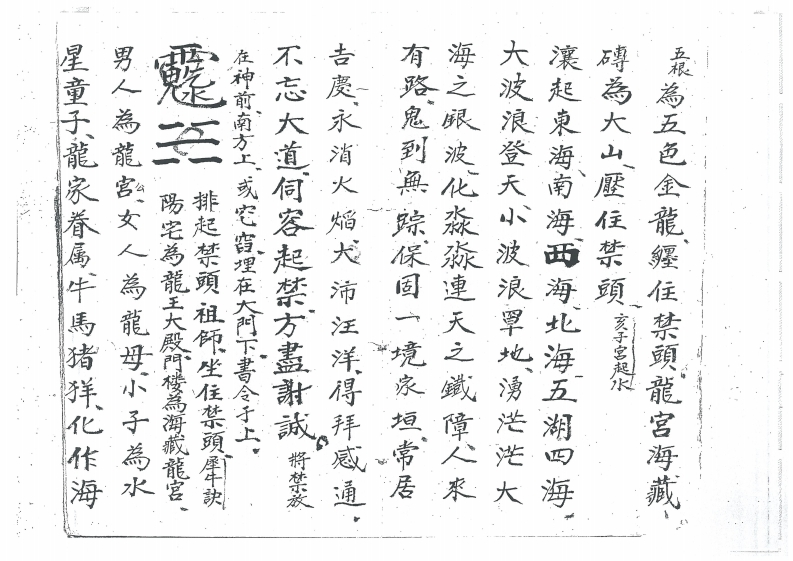 五根為五色金龍、纏住禁頭、龍宮海藏、
磚為大山、壓住禁頭、亥子宮起水
瀼起東海、南海西海、北海五湖四海、
大波浪登天、小波浪罩地、湧茫茫大
海之眼波、化淼淼連天之鐵障、人來
有路、鬼到無踪、保固一境家垣、常居
吉慶、永消火焰、大沛汪洋、得拜感通、
不忘大道、伺客起禁方、盡謝誠。將禁放
在神前、南方上、或穴窖埋在大門下、書令于上、
排起禁頭祖師、坐住禁頭、犀牛訣
陽宅為龍王大殿、門楼為海藏龍宮、
男人為龍宮公、女人為龍母、小子為水
星童子、龍家眷属、牛馬猪羊、化作海